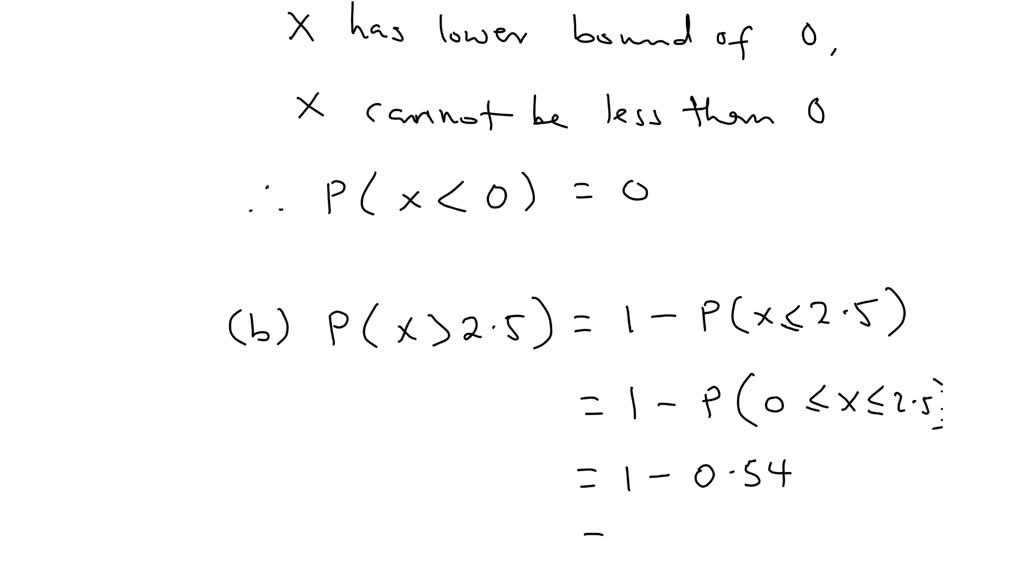 X has lower bound of 0,
X cannot be less than 0
∴ P(x < 0) = 0
(b) P(x > 2·5) = 1 − P(x ≤ 2·5)
= 1 − P(0 ≤ x ≤ 2·5)
= 1 − 0·54
=